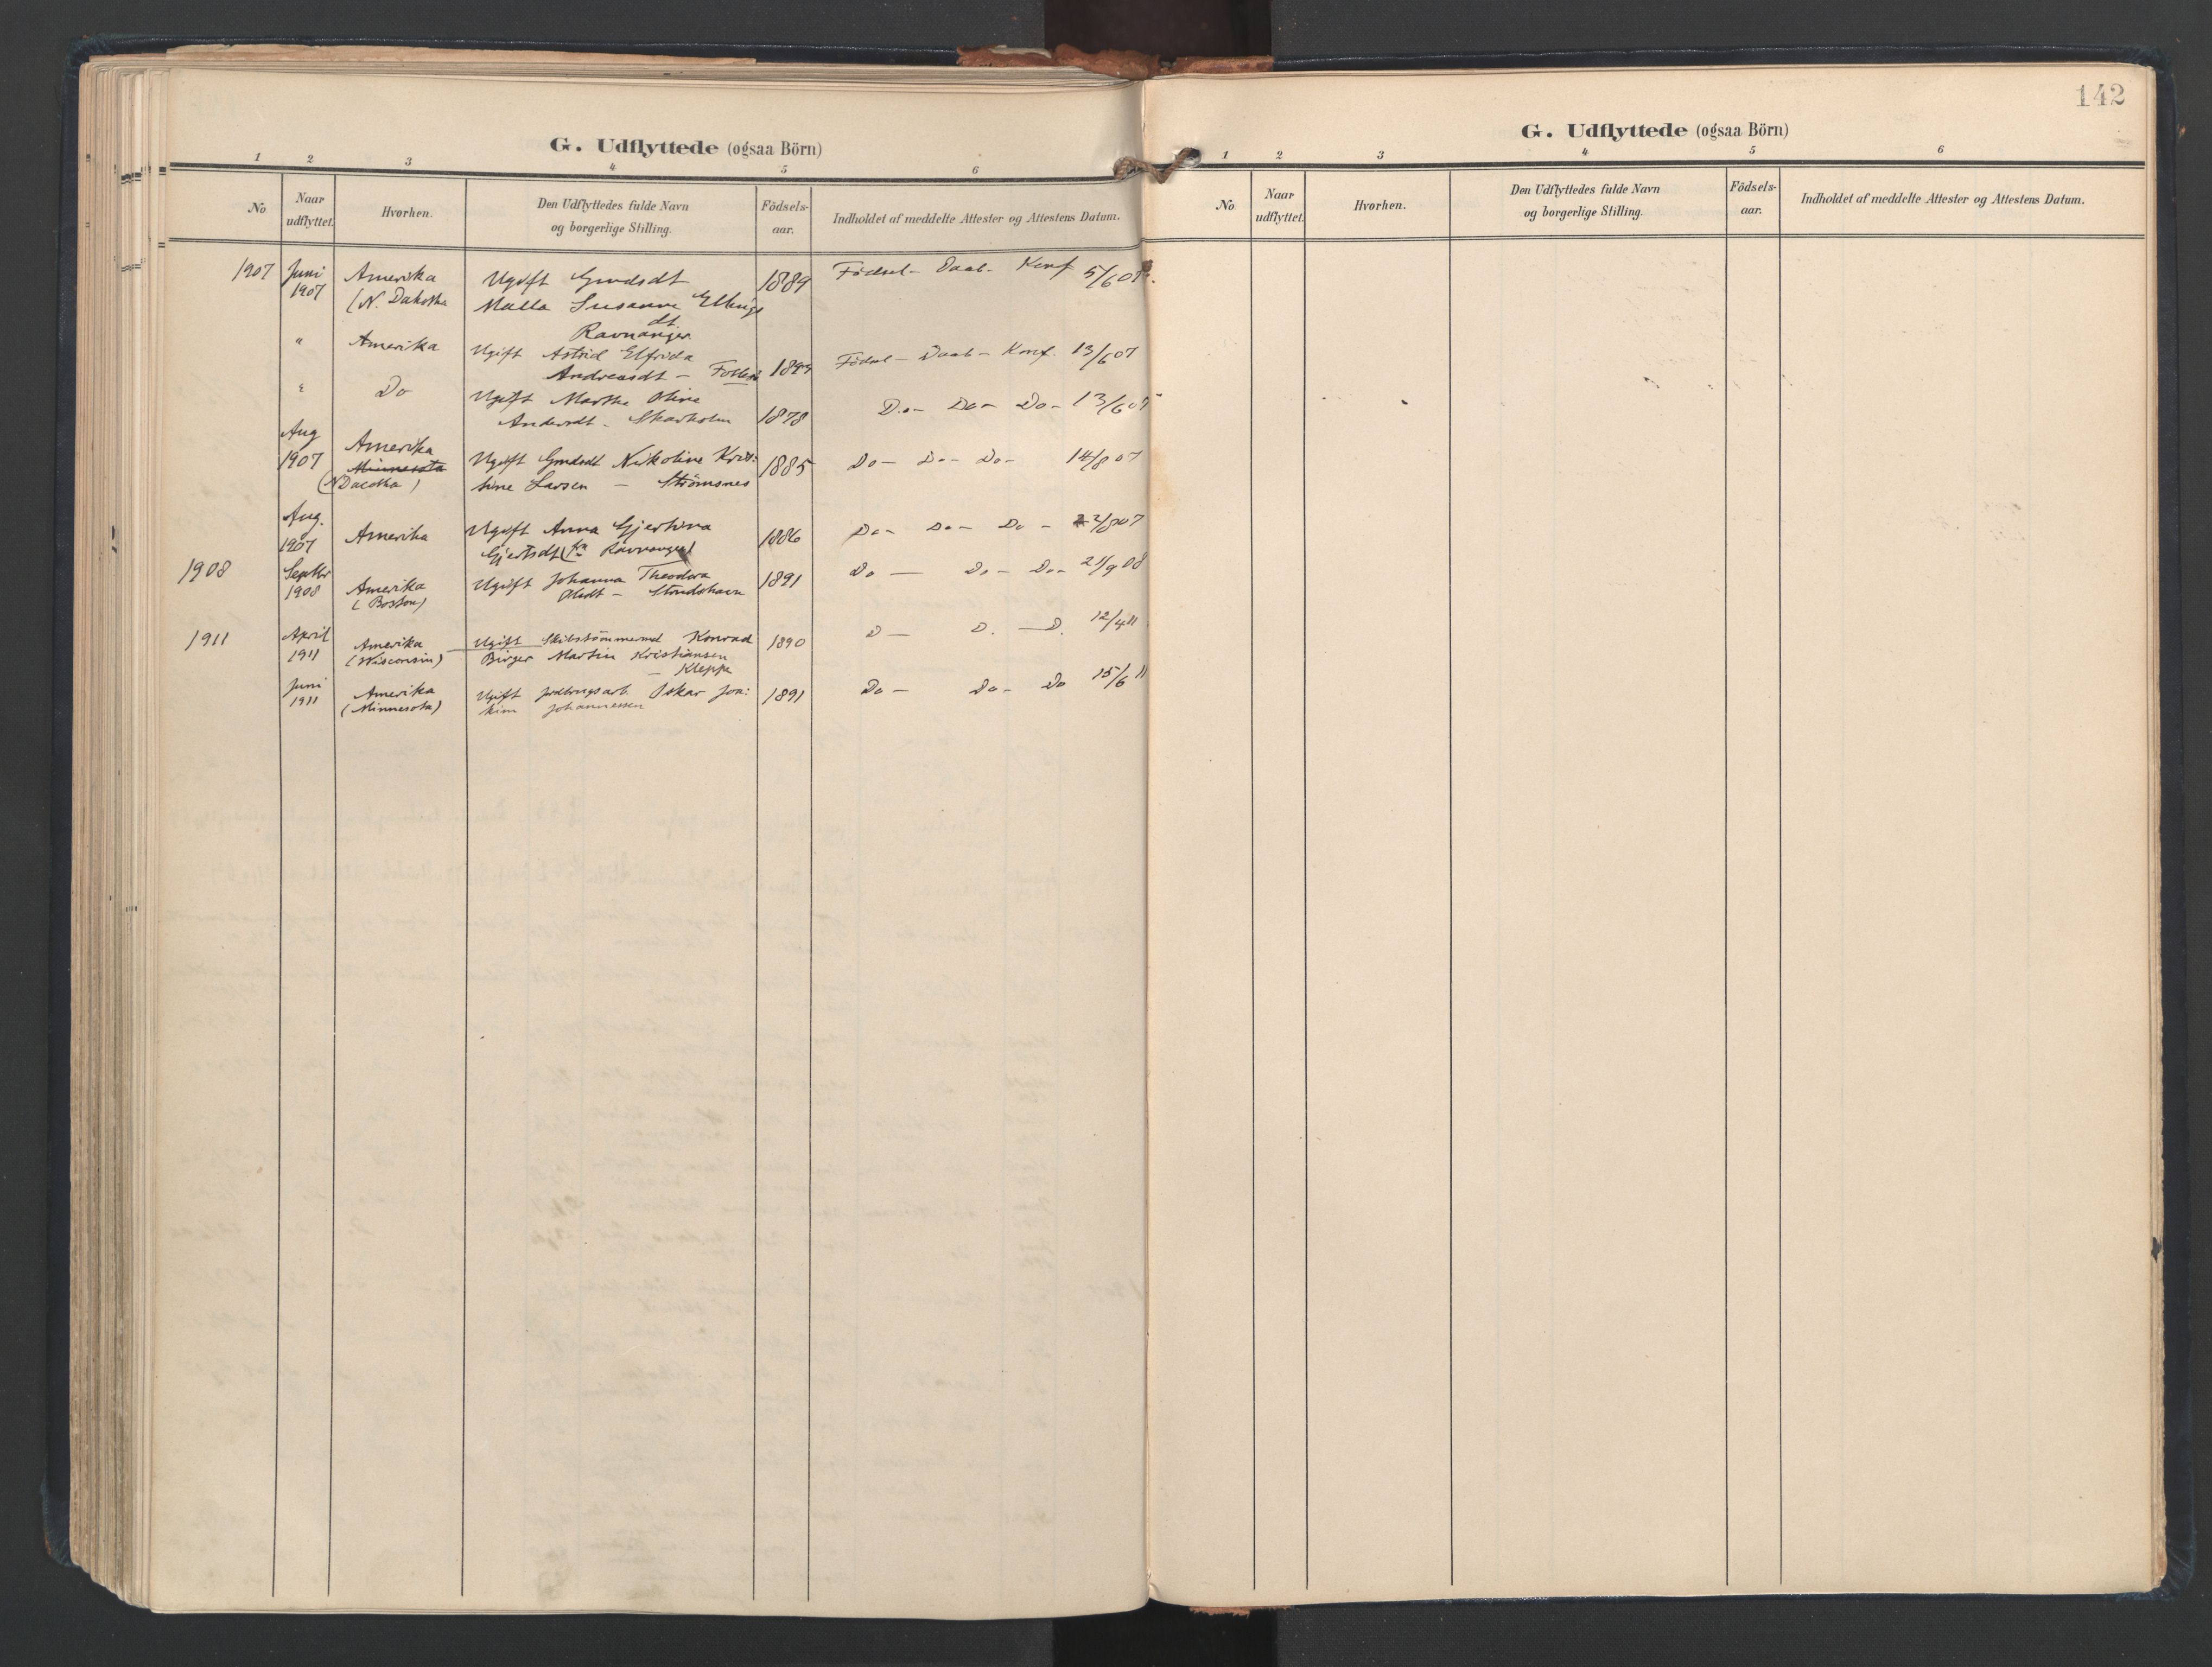 G. Udflyttede (ogsaa Börn)
1 2 3 4 5 6
No Naar udflyttet. Hvorhen. Den Udflyttedes fulde Navn og borgerlige Stilling. Födsels-aar. Indholdet af meddelte Attester og Attestens Datum.
1907 Juni Amerika Ugift Gmdsdt 1889 Födsel - Daab - Konf 5/6 07.
1907 (N. Dakotha Malla Susanne Ellings
dt
Ravnanger
" Amerika Ugift Astrid Elfrida
Andreasdt - 1899 Födsel - Daab - Konf. 13/6 07
" Do Ugift Martha Oline
Andersdt - Skarholm 1878 Do - Do - Do - 13/6 07
Aug Amerika
1907 Minnesota Ugift Gmdsdt Nikoline Kris: 1885 Do - Do - Do - 14/8 07
(N Dacotha) tine Larsen - Strömsnes
Aug. Amerika Ugift Anna Gjertina
1907 Gjertsdt (fra Ravnanger) 1886 Do - Do - Do - 22/8 07
1908 Septbr Amerika Ugift Johanna Theodora 1891 Do - Do - Do - 21/9 08
1908 (Boston) Olsdt -
1911 April Amerika Ugift Skibstömmermd Konrad 1890 D - D. - D. 12/4 11
1911 (Wisconsin) Birger Martin Kristiansen
- Kleppe
Juni Amerika Ugift jordbrugsarb. Oskar Joa: 1891 Do - Do - Do 15/6 11
1911 (Minnesota) kim Johannessen
142
G. Udflyttede (ogsaa Börn)
1 2 3 4 5 6
No Naar udflyttet. Hvorhen. Den Udflyttedes fulde Navn og borgerlige Stilling. Födsels-aar. Indholdet af meddelte Attester og Attestens Datum.